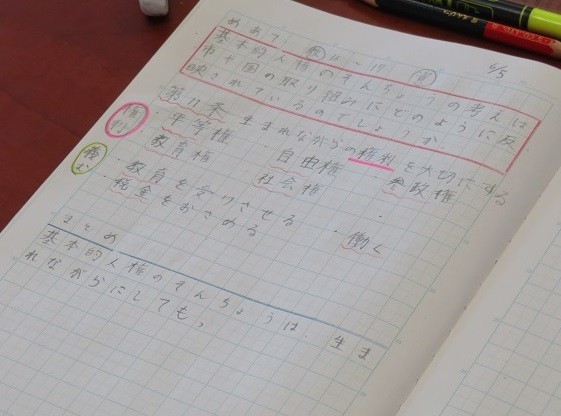 めあて 教16~17 6/5
基本的人権のそんちょうの考えは
市や国の取り組みにどのように反
映されているのでしょうか。
第11条 生まれながらの権利を大切にする
権利
・平等権 ・自由権 ・参政権
・教育権 ・社会権
義む
・教育を受けさせる ・働く
・税金をおさめる
まとめ
基本的人権のそんちょうは、生ま
れながらにしても